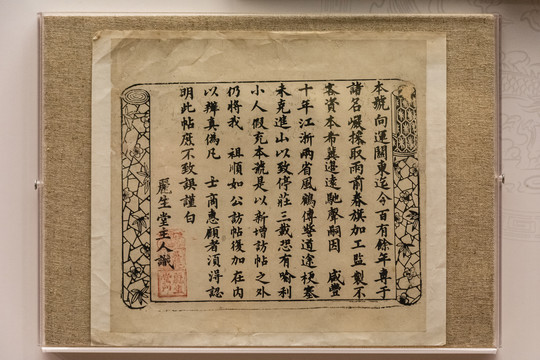 本號向運關東迄今百有餘年專于
諸名巖採取雨前春旗加工監製不
客資本希冀遐遠馳聲嗣因 咸豐
十年江浙兩省風鶴傳警道途梗塞
未克進山以致停莊三載恐有喻利
小人假充本號是以新增訪帖之外
仍將我 祖順如公訪帖後加在內
以辨真偽凡 士商惠顧者須得認
明此帖庶不致誤謹白
麗生堂主人識